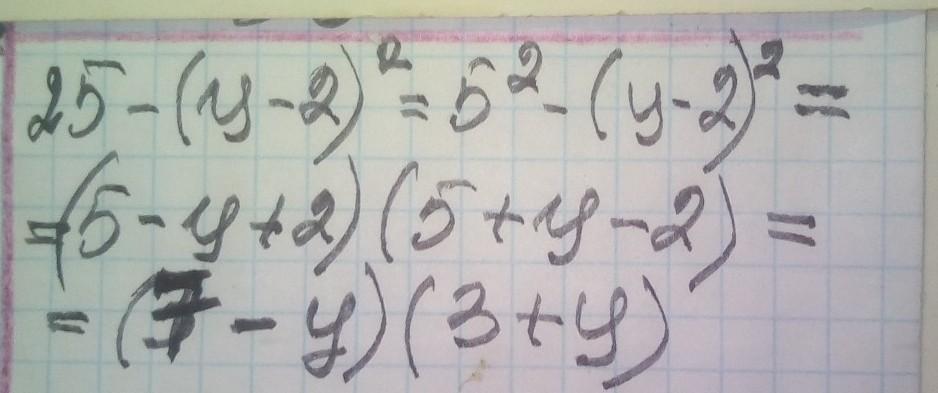 25 - (y - 2)² = 5² - (y - 2)² =
= (5 - y + 2)(5 + y - 2) =
= (7 - y)(3 + y)